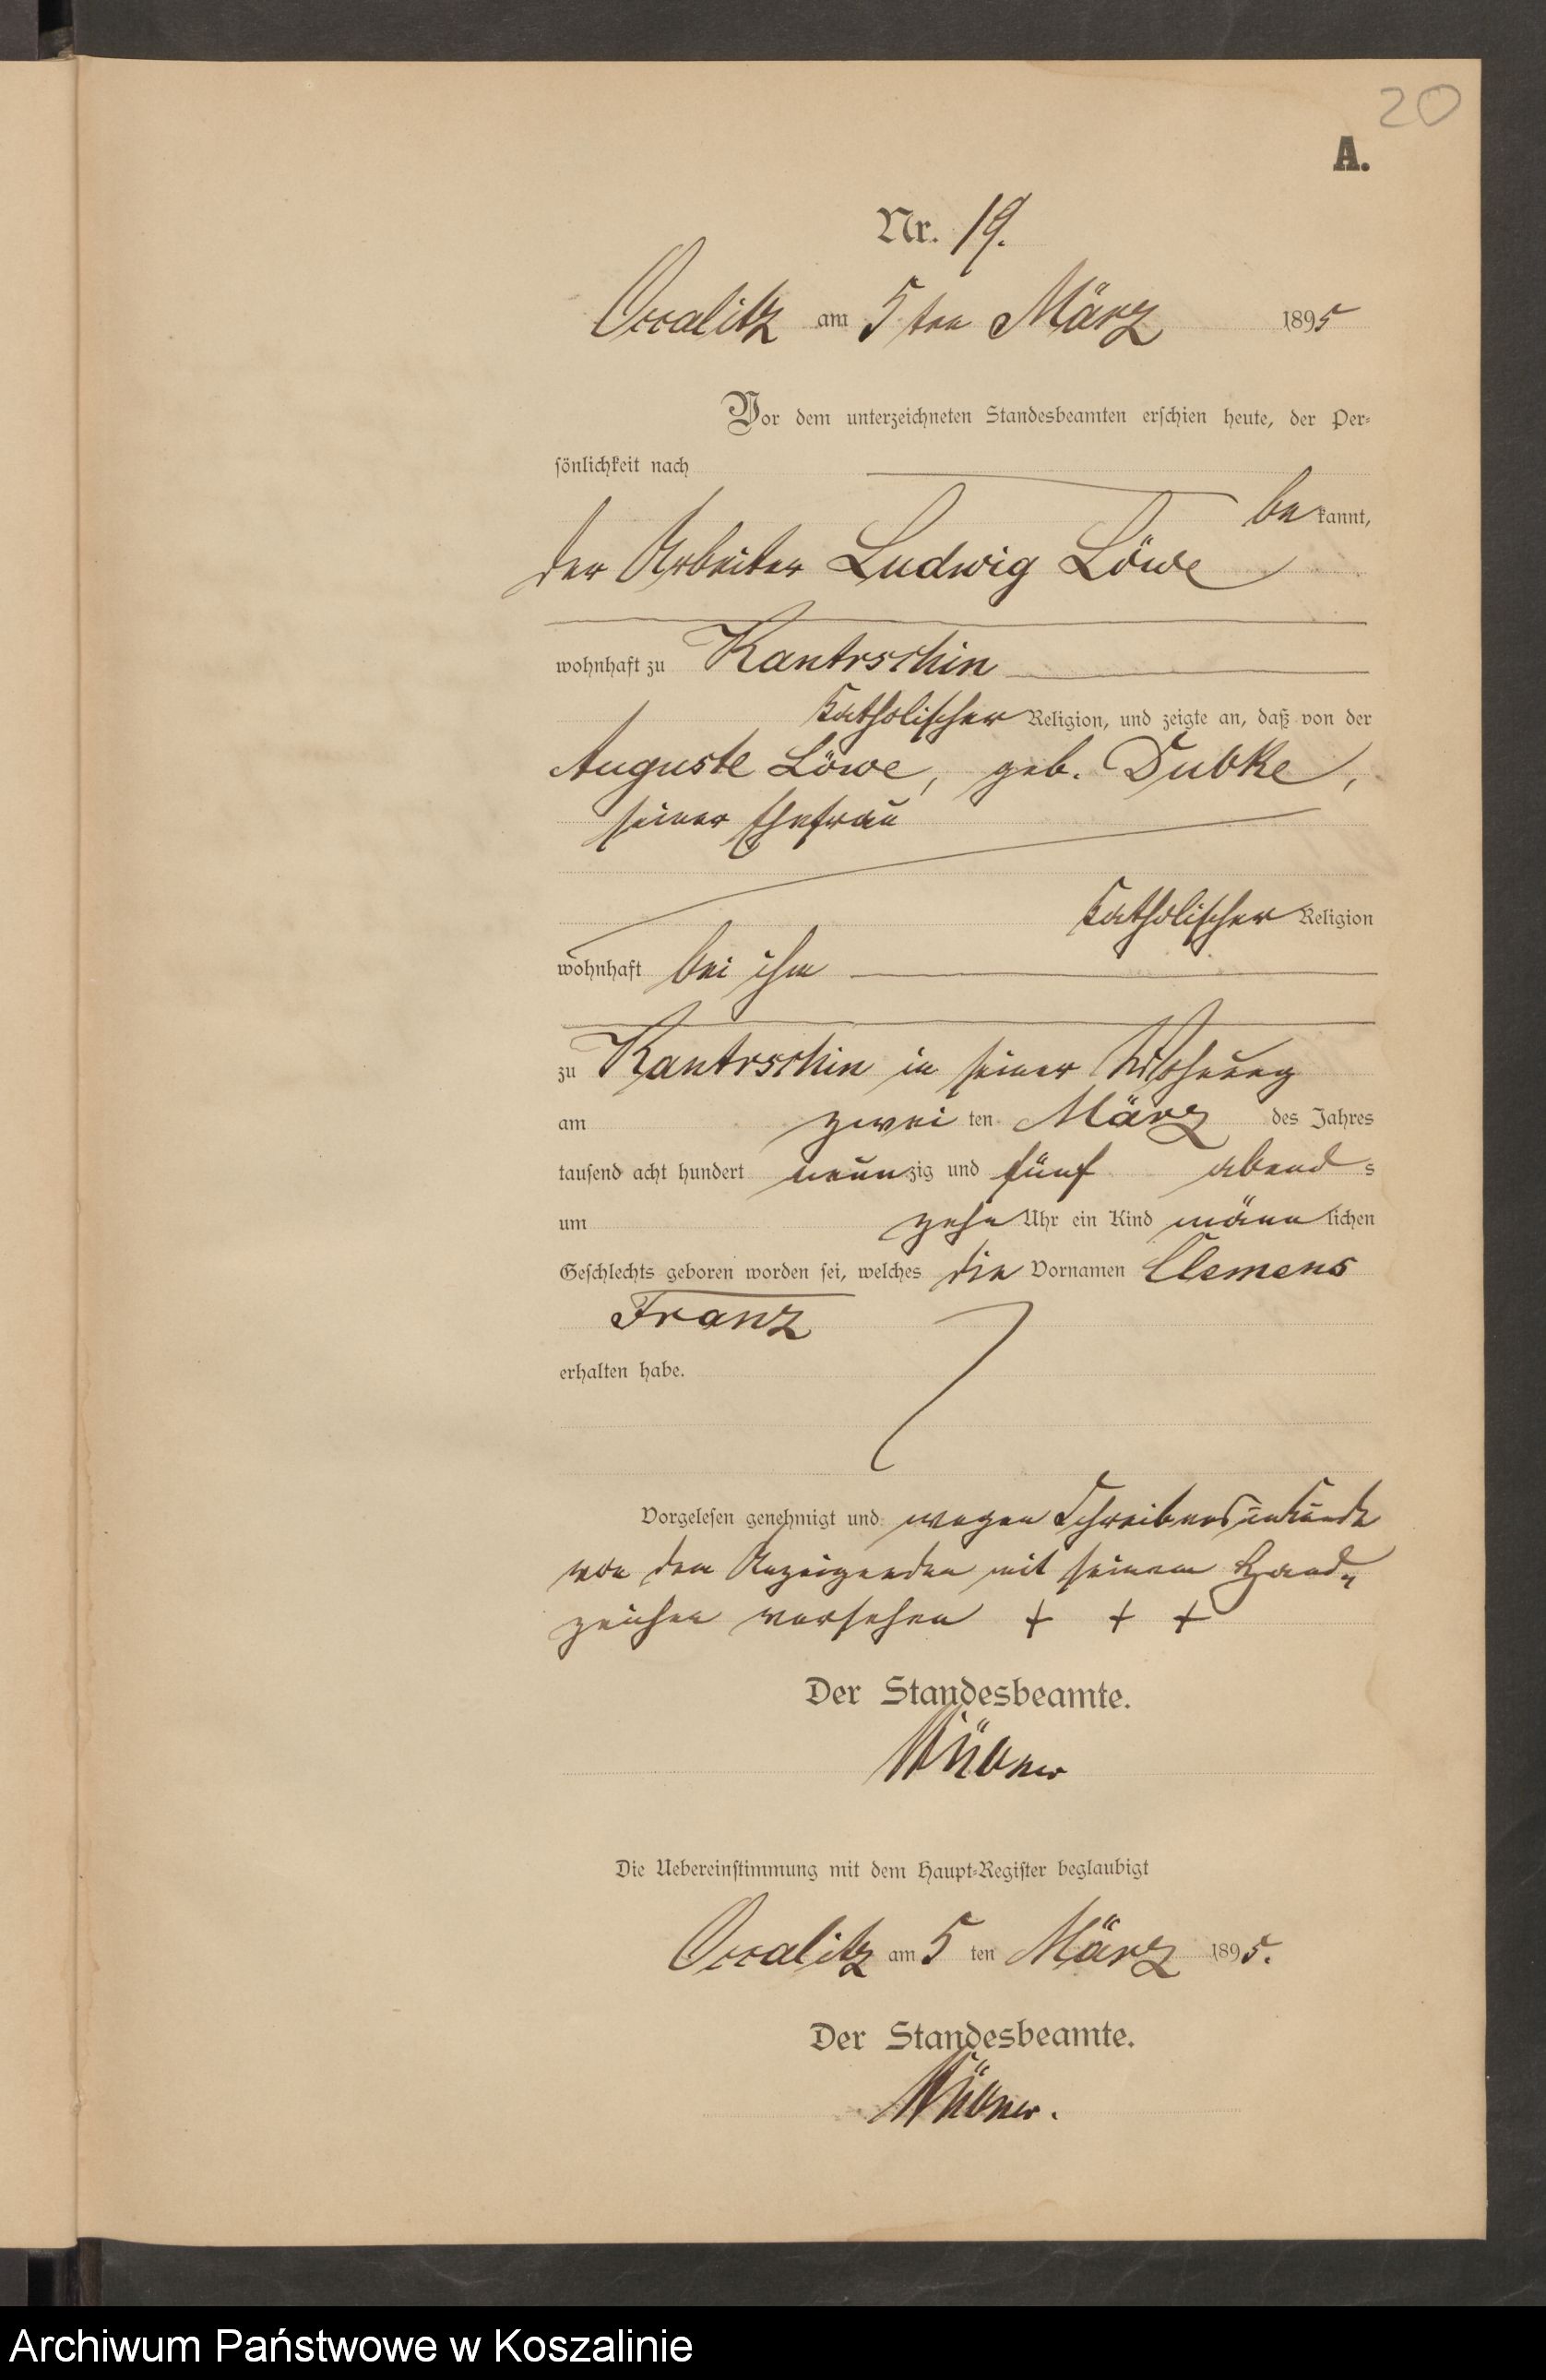 20
A.
Nr. 19.
Occalitz am 5 ten März 1895
Vor dem unterzeichneten Standesbeamten erschien heute, der Per-
sönlichkeit nach
bekannt,
der Arbeiter Ludwig Löwe
wohnhaft zu Kantrschin
katholischer Religion, und zeigte an, daß von der
Auguste Löwe, geb. Dubke,
seiner Ehefrau
katholischer Religion
wohnhaft bei ihm
zu Kantrschin in seiner Wohnung
am zwei ten März des Jahres
tausend acht hundert neunzig und fünf abends
um zehn Uhr ein Kind männlichen
Geschlechts geboren worden sei, welches die Vornamen Clemens
Franz
erhalten habe.
Vorgelesen genehmigt und wegen Schreibensunkunde
von dem Anzeigenden mit seinem Hand-
zeichen versehen + + +
Der Standesbeamte.
Die Uebereinstimmung mit dem Haupt-Register beglaubigt
Occalitz am 5 ten März 1895.
Der Standesbeamte.
Archiwum Państwowe w Koszalinie